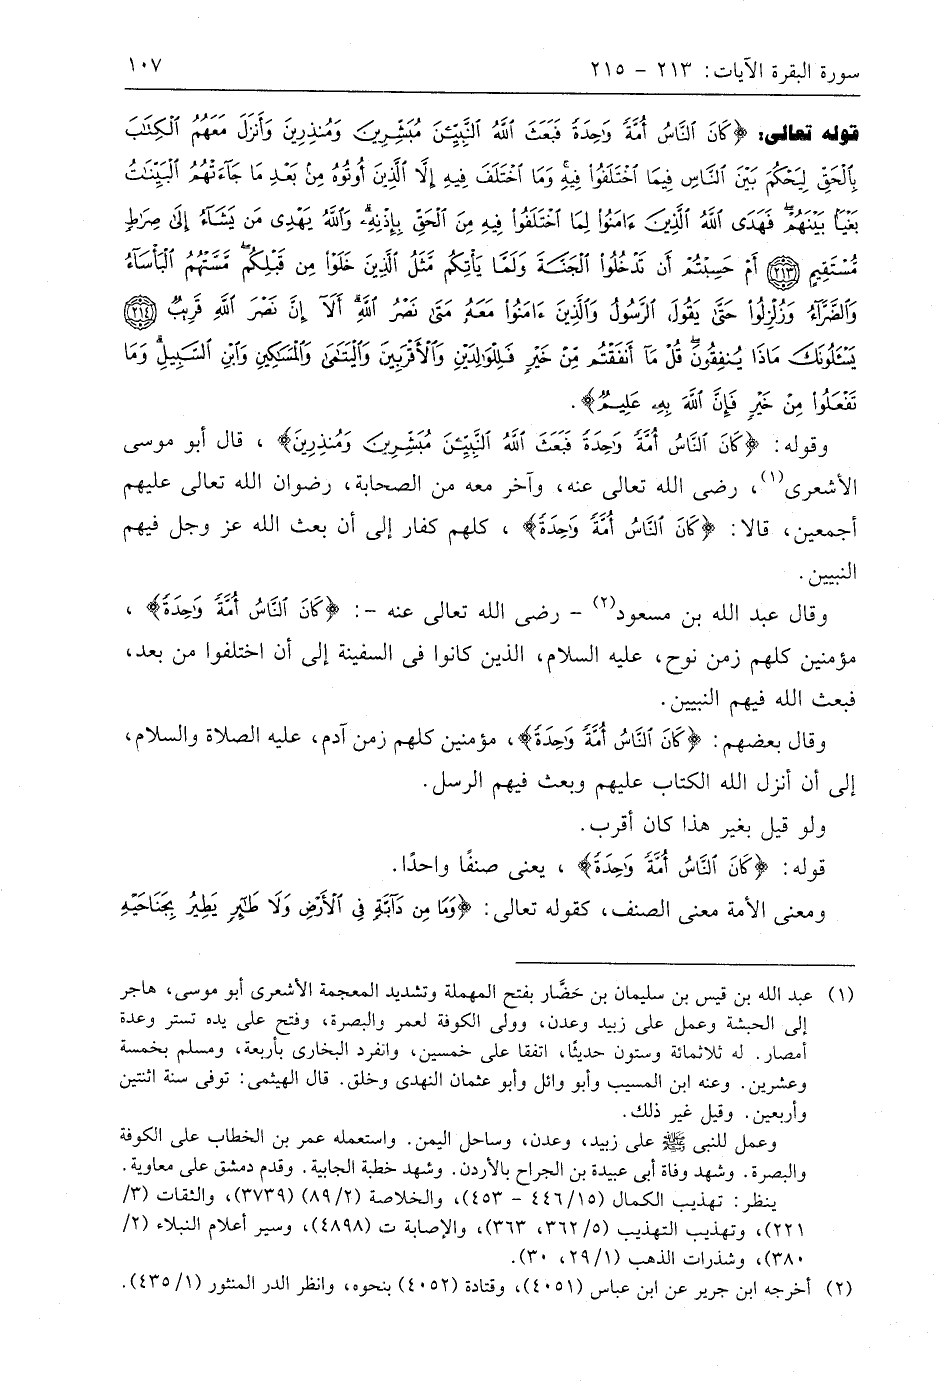 سورة البقرة الآيات: ٢١٣ - ٢١٥
١٠٧
قوله تعالى: ﴿كَانَ ٱلنَّاسُ أُمَّةً وَٰحِدَةً فَبَعَثَ ٱللَّهُ ٱلنَّبِيِّـۧنَ مُبَشِّرِينَ وَمُنذِرِينَ وَأَنزَلَ مَعَهُمُ ٱلْكِتَٰبَ
بِٱلْحَقِّ لِيَحْكُمَ بَيْنَ ٱلنَّاسِ فِيمَا ٱخْتَلَفُوا۟ فِيهِ ۚ وَمَا ٱخْتَلَفَ فِيهِ إِلَّا ٱلَّذِينَ أُوتُوهُ مِنۢ بَعْدِ مَا جَآءَتْهُمُ ٱلْبَيِّنَٰتُ
بَغْيًۢا بَيْنَهُمْ ۖ فَهَدَى ٱللَّهُ ٱلَّذِينَ ءَامَنُوا۟ لِمَا ٱخْتَلَفُوا۟ فِيهِ مِنَ ٱلْحَقِّ بِإِذْنِهِۦ ۗ وَٱللَّهُ يَهْدِى مَن يَشَآءُ إِلَىٰ صِرَٰطٍ
مُّسْتَقِيمٍ ﴿٢١٣﴾ أَمْ حَسِبْتُمْ أَن تَدْخُلُوا۟ ٱلْجَنَّةَ وَلَمَّا يَأْتِكُم مَّثَلُ ٱلَّذِينَ خَلَوْا۟ مِن قَبْلِكُم ۖ مَّسَّتْهُمُ ٱلْبَأْسَآءُ
وَٱلضَّرَّآءُ وَزُلْزِلُوا۟ حَتَّىٰ يَقُولَ ٱلرَّسُولُ وَٱلَّذِينَ ءَامَنُوا۟ مَعَهُۥ مَتَىٰ نَصْرُ ٱللَّهِ ۗ أَلَآ إِنَّ نَصْرَ ٱللَّهِ قَرِيبٌ ﴿٢١٤﴾
يَسْـَٔلُونَكَ مَاذَا يُنفِقُونَ ۖ قُلْ مَآ أَنفَقْتُم مِّنْ خَيْرٍ فَلِلْوَٰلِدَيْنِ وَٱلْأَقْرَبِينَ وَٱلْيَتَٰمَىٰ وَٱلْمَسَٰكِينِ وَٱبْنِ ٱلسَّبِيلِ ۗ وَمَا
تَفْعَلُوا۟ مِنْ خَيْرٍ فَإِنَّ ٱللَّهَ بِهِۦ عَلِيمٌ﴾.
وقوله: ﴿كَانَ ٱلنَّاسُ أُمَّةً وَٰحِدَةً فَبَعَثَ ٱللَّهُ ٱلنَّبِيِّـۧنَ مُبَشِّرِينَ وَمُنذِرِينَ﴾ ، قال أبو موسى
الأشعرى(١)، رضى الله تعالى عنه، وآخر معه من الصحابة، رضوان الله تعالى عليهم
أجمعين، قالا: ﴿كَانَ ٱلنَّاسُ أُمَّةً وَٰحِدَةً﴾ ، كلهم كفار إلى أن بعث الله عز وجل فيهم
النبيين.
وقال عبد الله بن مسعود(٢) - رضى الله تعالى عنه -: ﴿كَانَ ٱلنَّاسُ أُمَّةً وَٰحِدَةً﴾ ،
مؤمنين كلهم زمن نوح، عليه السلام، الذين كانوا فى السفينة إلى أن اختلفوا من بعد،
فبعث الله فيهم النبيين.
وقال بعضهم: ﴿كَانَ ٱلنَّاسُ أُمَّةً وَٰحِدَةً﴾، مؤمنين كلهم زمن آدم، عليه الصلاة والسلام،
إلى أن أنزل الله الكتاب عليهم وبعث فيهم الرسل.
ولو قيل بغير هذا كان أقرب.
قوله: ﴿كَانَ ٱلنَّاسُ أُمَّةً وَٰحِدَةً﴾ ، يعنى صنفًا واحدًا.
ومعنى الأمة معنى الصنف، كقوله تعالى: ﴿وَمَا مِن دَآبَّةٍ فِى ٱلْأَرْضِ وَلَا طَٰٓئِرٍ يَطِيرُ بِجَنَاحَيْهِ
(١) عبد الله بن قيس بن سليمان بن حَضَّار بفتح المهملة وتشديد المعجمة الأشعرى أبو موسى، هاجر
إلى الحبشة وعمل على زبيد وعدن، وولى الكوفة لعمر والبصرة، وفتح على يده تستر وعدة
أمصار. له ثلاثمائة وستون حديثًا، اتفقا على خمسين، وانفرد البخارى بأربعة، ومسلم بخمسة
وعشرين. وعنه ابن المسيب وأبو وائل وأبو عثمان النهدى وخلق. قال الهيثمى: توفى سنة اثنتين
وأربعين. وقيل غير ذلك.
وعمل للنبى ﷺ على زبيد، وعدن، وساحل اليمن. واستعمله عمر بن الخطاب على الكوفة
والبصرة. وشهد وفاة أبى عبيدة بن الجراح بالأردن. وشهد خطبة الجابية. وقدم دمشق على معاوية.
ينظر: تهذيب الكمال (١٥/ ٤٤٦ - ٤٥٣)، والخلاصة (٢/ ٨٩) (٣٧٣٩)، والثقات (٣/
٢٢١)، وتهذيب التهذيب (٥/ ٣٦٢، ٣٦٣)، والإصابة ت (٤٨٩٨)، وسير أعلام النبلاء (٢/
٣٨٠)، وشذرات الذهب (١/ ٢٩، ٣٠).
(٢) أخرجه ابن جرير عن ابن عباس (٤٠٥١)، وقتادة (٤٠٥٢) بنحوه، وانظر الدر المنثور (١/ ٤٣٥).